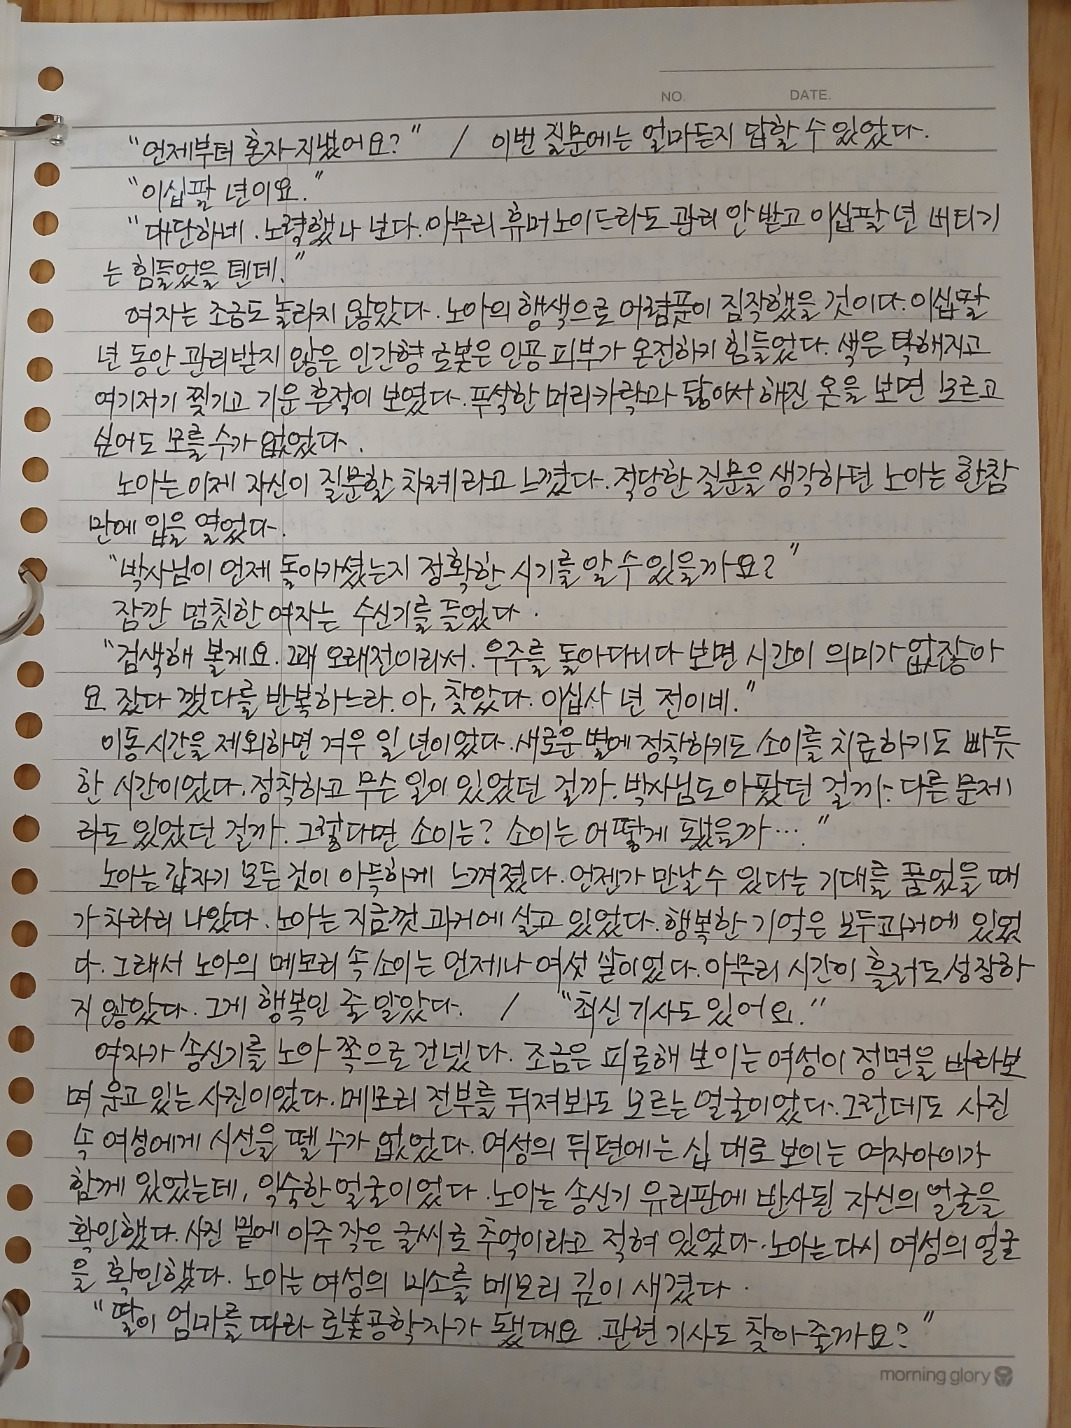 NO. DATE.
"언제부터 혼자 지냈어요?" / 이번 질문에는 얼마든지 답할 수 있었다.
"이십팔 년이요."
"대단하네. 노력했나 보다. 아무리 휴머노이드라도 관리 안 받고 이십팔 년 버티기
는 힘들었을 텐데."
여자는 조금도 놀라지 않았다. 노아의 행색으로 어렴풋이 짐작했을 것이다. 이십팔
년 동안 관리받지 않은 인간형 로봇은 인공 피부가 온전하기 힘들었다. 색은 탁해지고
여기저기 찢기고 기운 흔적이 보였다. 푸석한 머리카락과 닳아서 해진 옷을 보면 모르고
싶어도 모를 수가 없었다.
노아는 이제 자신이 질문할 차례라고 느꼈다. 적당한 질문을 생각하던 노아는 한참
만에 입을 열었다.
"박사님이 언제 돌아가셨는지 정확한 시기를 알 수 있을까요?"
잠깐 멈칫한 여자는 수신기를 들었다.
"검색해 볼게요. 꽤 오래전이라서. 우주를 돌아다니다 보면 시간이 의미가 없잖아
요 잤다 깼다를 반복하느라. 아, 찾았다. 이십사 년 전이네."
이동시간을 제외하면 겨우 일 년이었다. 새로운 별에 정착하기도 소이를 치료하기도 빠듯
한 시간이었다. 정착하고 무슨 일이 있었던 걸까. 박사님도 아팠던 걸까. 다른 문제
라도 있었던 걸까. 그렇다면 소이는? 소이는 어떻게 됐을까…"
노아는 갑자기 모든 것이 아득하게 느껴졌다. 언젠가 만날 수 있다는 기대를 품었을 때
가 차라리 나았다. 노아는 지금껏 과거에 살고 있었다. 행복한 기억은 모두 과거에 있었
다. 그래서 노아의 메모리 속 소이는 언제나 여섯 살이었다. 아무리 시간이 흘러도 성장하
지 않았다. 그게 행복인 줄 알았다. / "최신 기사도 있어요."
여자가 송신기를 노아 쪽으로 건넸다. 조금은 피로해 보이는 여성이 정면을 바라보
며 웃고 있는 사진이었다. 메모리 전부를 뒤져봐도 모르는 얼굴이었다. 그런데도 사진
속 여성에게 시선을 뗄 수가 없었다. 여성의 뒤편에는 십 대로 보이는 여자아이가
함께 있었는데, 익숙한 얼굴이었다. 노아는 송신기 유리판에 반사된 자신의 얼굴을
확인했다. 사진 밑에 아주 작은 글씨로 추억이라고 적혀 있었다. 노아는 다시 여성의 얼굴
을 확인했다. 노아는 여성의 미소를 메모리 깊이 새겼다.
"딸이 엄마를 따라 로봇공학자가 됐대요. 관련 기사도 찾아줄까요?"
morning glory